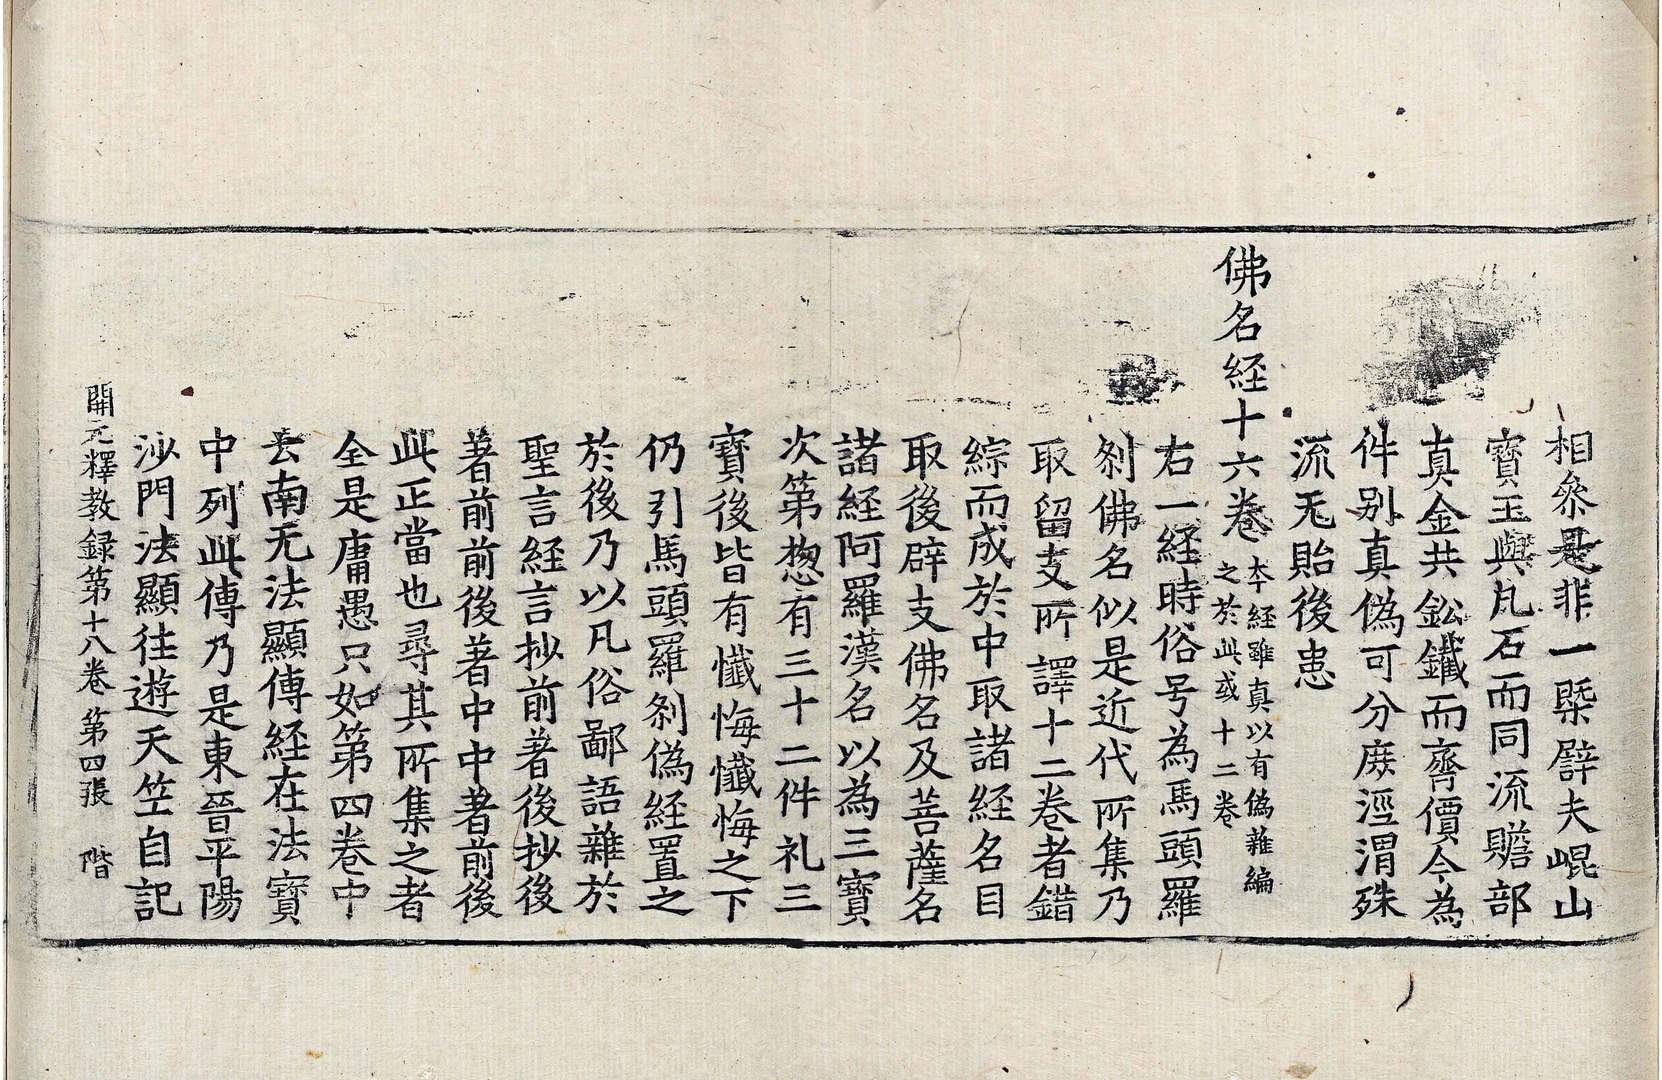 相叅是非一槩譬夫崐山
寶玉與凡石而同流贍部
真金共鈆鐵而齊價今為
件别真偽可分庶涇渭殊
流无貽後患
佛名経十六巻
本経雖真以有偽雜編
之於此或十二巻
右一経時俗号為馬頭羅
刹佛名似是近代所集乃
取留支所譯十二巻者錯
綜而成於中取諸経名目
取後辟支佛名及菩薩名
諸経阿羅漢名以為三寶
次第惣有三十二件礼三
寶後皆有懺悔懺悔之下
仍引馬頭羅刹偽経置之
於後乃以凡俗鄙語雜於
聖言経言抄前著後抄後
著前前後著中中著前後
此正當也尋其所集之者
全是庸愚只如第四巻中
云南无法顯傳経在法寶
中列此傳乃是東晉平陽
沙門法顯往遊天笁自記
開元釋教録第十八巻 第四張 階